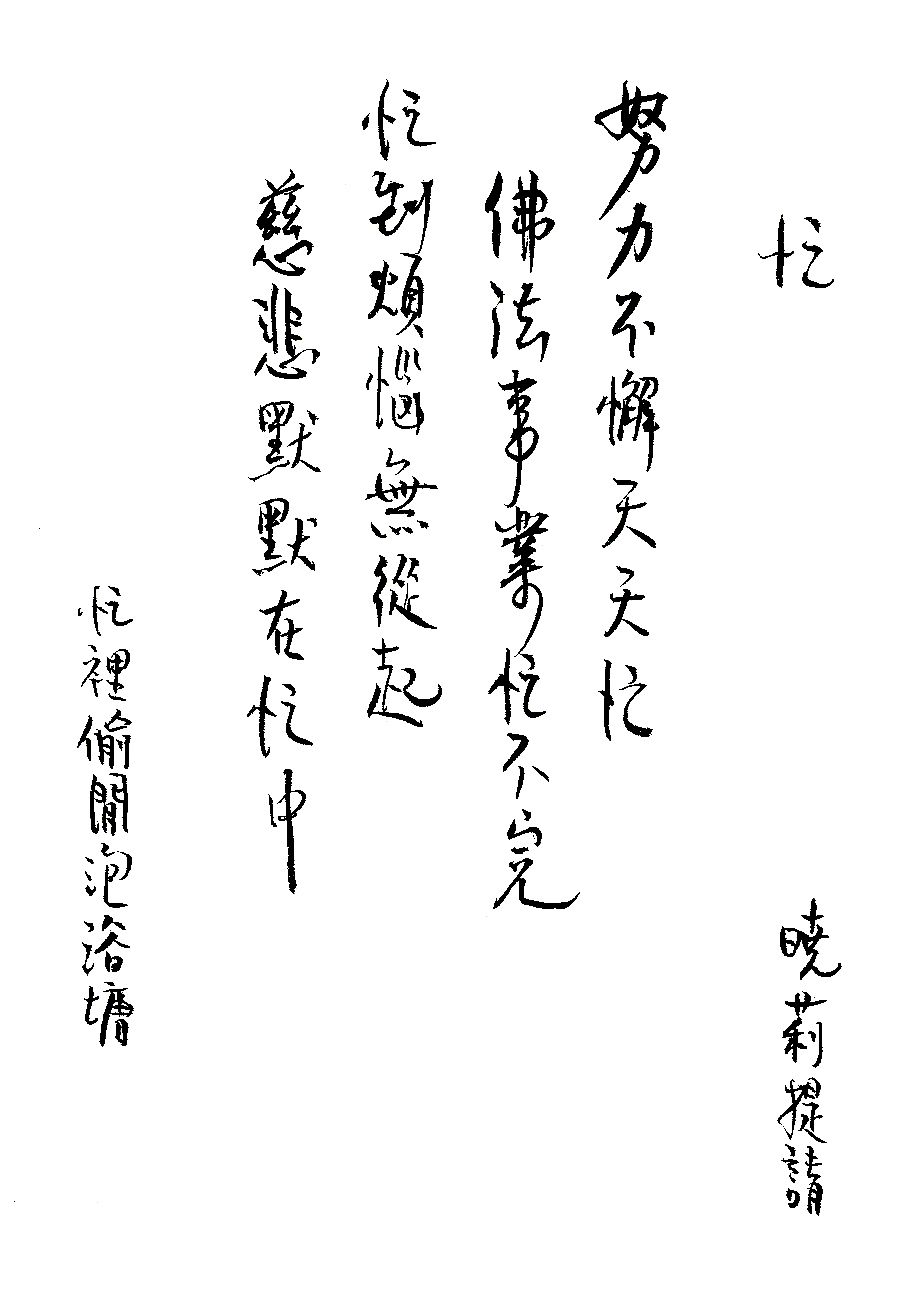 忙
曉莉提請
努力不懈天天忙
佛法事業忙不完
忙到煩惱無從起
慈悲默默在忙中
忙裡偷閒泡浴塘